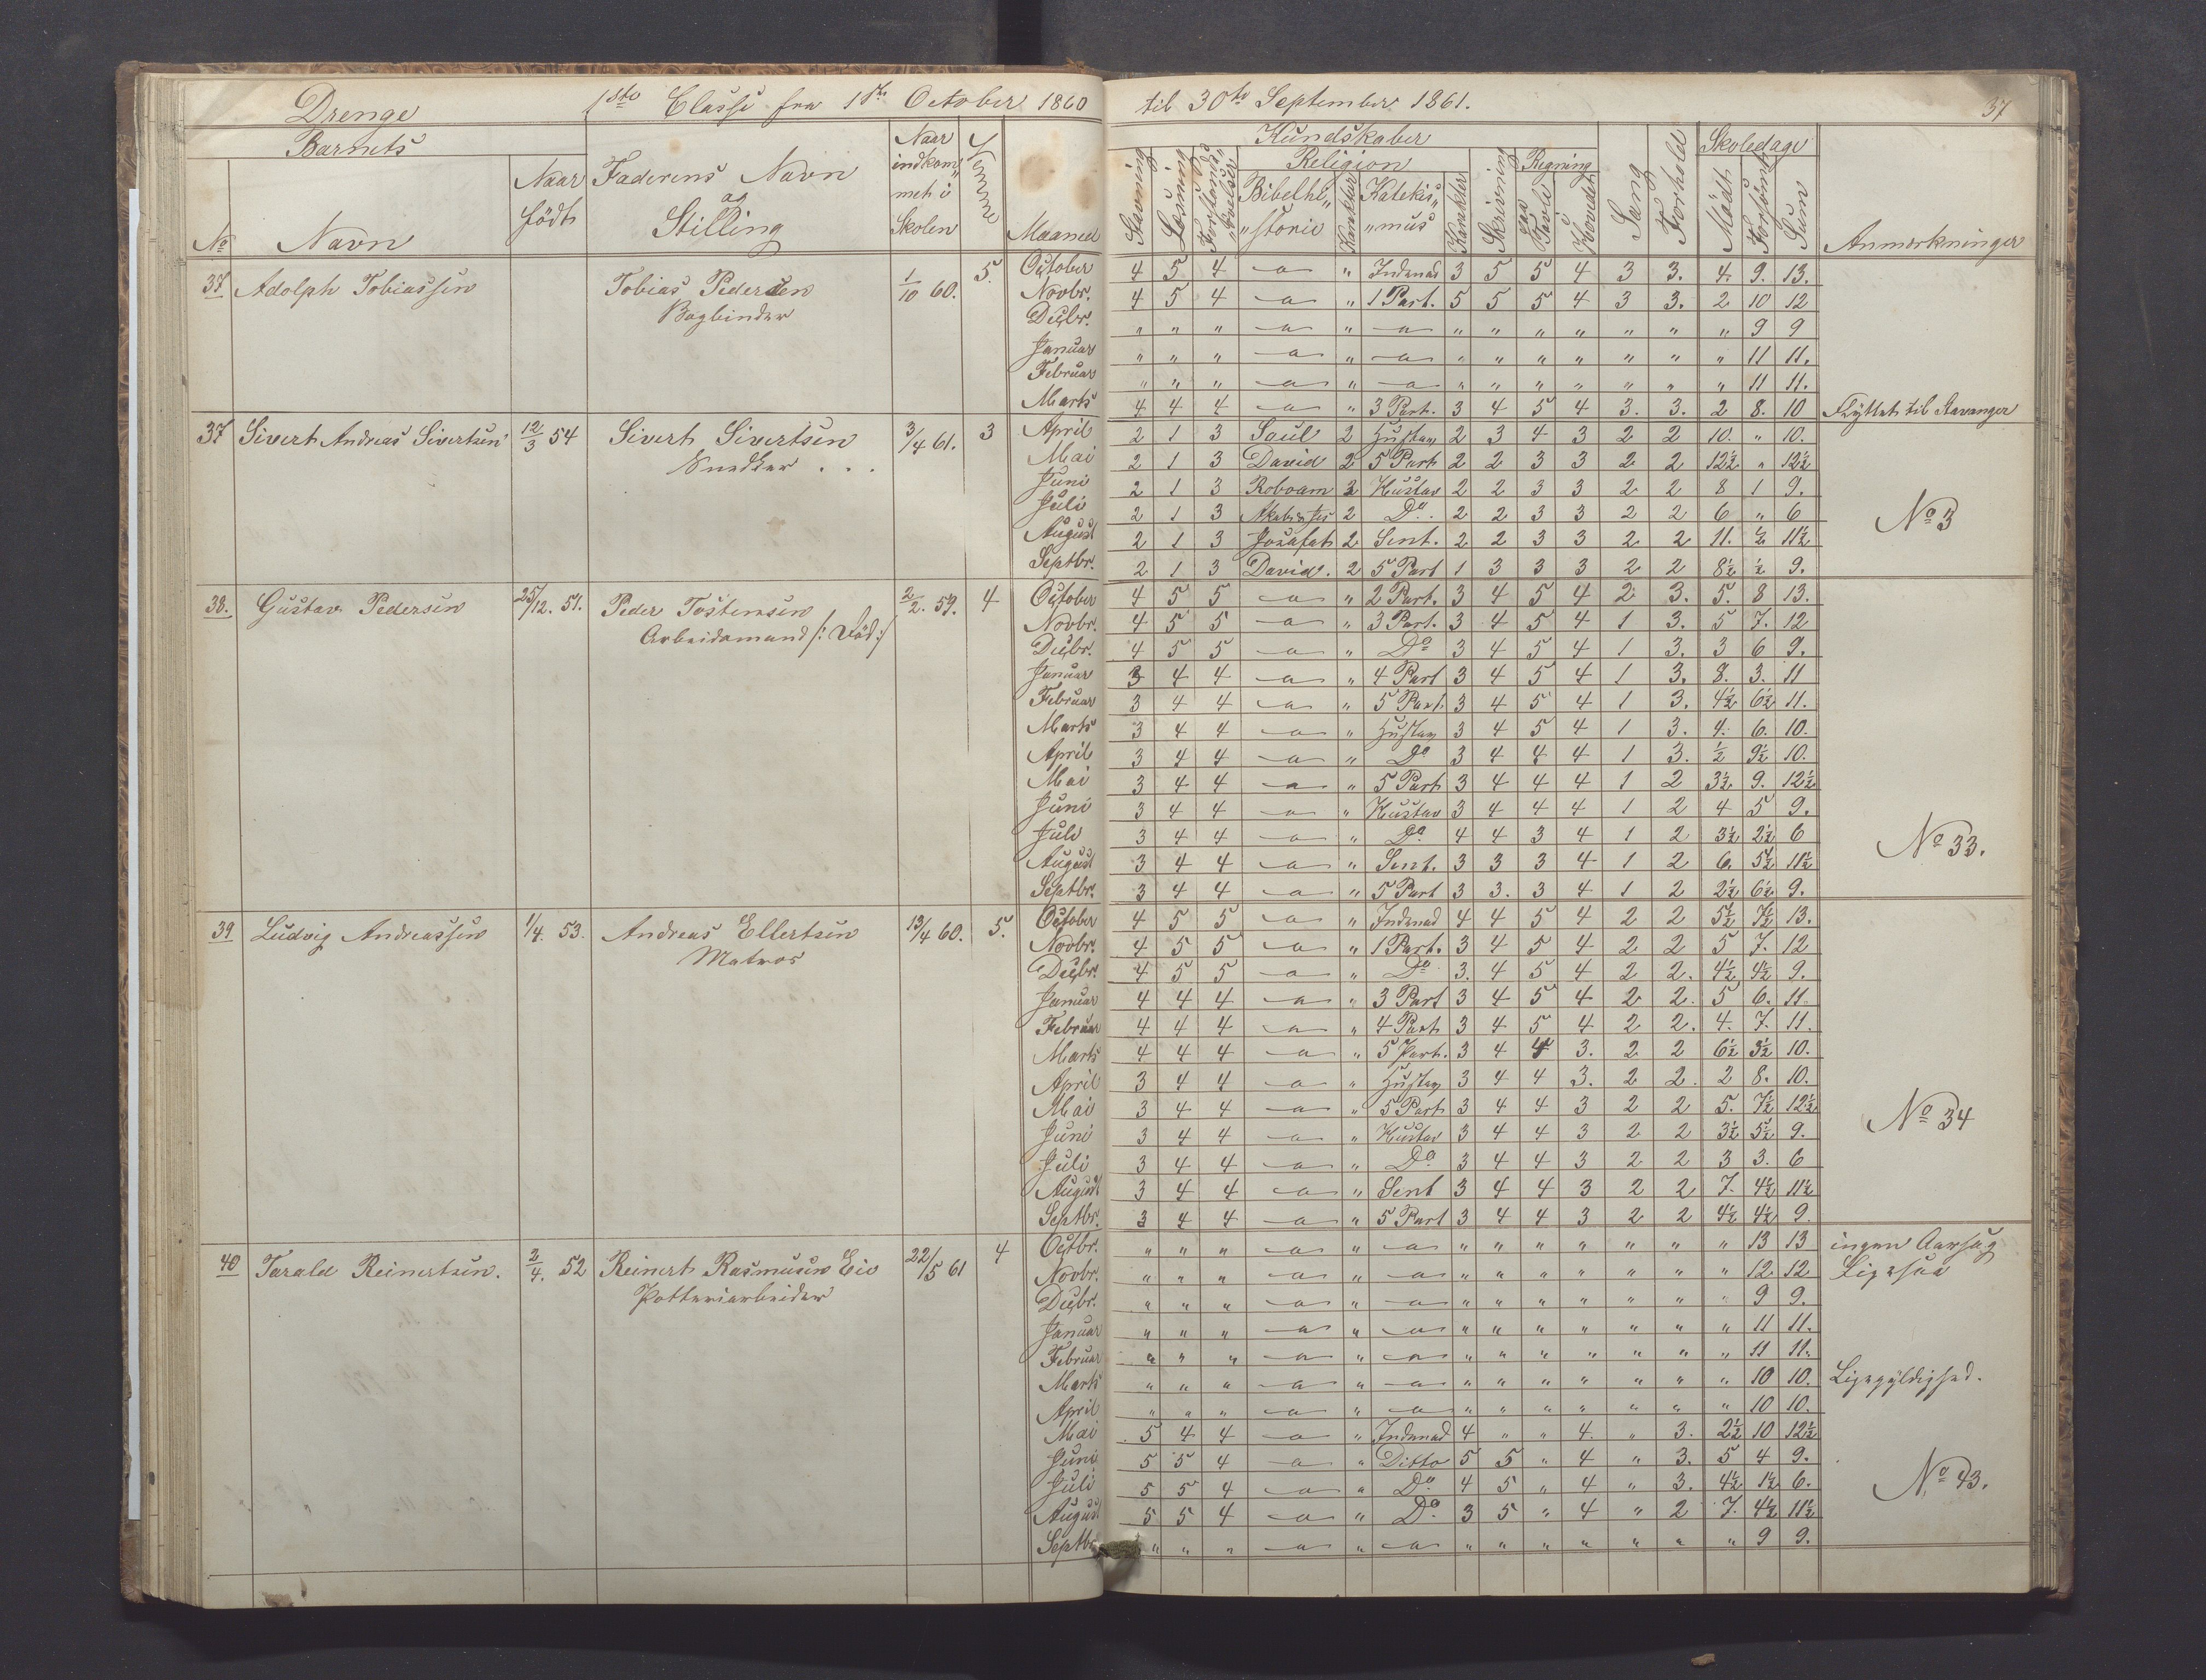 Drenge 1ste Classe fra 1ste October 1860 til 30te September 1861. 37
Barnets
No Navn Naar födt Faderens Navn og Stilling Naar indkom„ met i Skolen Evne Maaned
Kundskaber
Stavning Læsning Forstands„ „övelser Religion Bibelhi„ „storie Karakter Katekis„ „mus Karakter Skrivning Regning Paa Tavle i Hovedet Sang Forhold Skoledage Mödt Forsömt Sum Anmærkninger
37 Adolph Tobiassen Tobias Pedersen 1/10 60. 5. October 4 5 4 — " Indenad 3 5 5 4 3 3. 4. 9. 13.
Bogbinder Novbr. 4 5 4 — " 1 Part. 5 5 5 4 3 3. 2 10 12
Decbr. " " " — " — " " " " " " " 9 9
Januar " " " — " — " " " " " " " 11 11.
Februar " " " — " — " " " " " " " 11 11.
Marts 4 4 4 — " 3 Part. 3 4 5 4 3. 3. 2 8. 10 Flyttet til Stavanger
37 Sivert Andreas Sivertsen 12/3 54 Sivert Sivertsen 3/4 61. 3 April 2 1 3 Saul 2 Hustav 2 3 4 3 2 2 10. " 10.
Snedker . . . Mai 2 1 3 David 2 5 Part 2 2 3 3 2 2 12½ " 12½
Juni 2 1 3 Roboam 2 Hustav 2 2 3 3 2 2 8 1 9.
Juli 2 1 3 2 Do. 2 2 3 3 2 2 6 " 6 No 3
August 2 1 3 Josafat 2 Sent. 2 2 3 3 2 2 11. ½ 11½
Septbr. 2 1 3 David. 2 5 Part 1 3 3 3 2 2 8½ ½ 9.
38. Gustav Pedersen 25/12. 51. Peder Tostensen 2/2. 59. 4 October 4 5 5 — " 2 Part. 3 4 5 4 2 3. 5. 8 13.
Arbeidsmand /: Död :/ Novbr. 4 5 5 — " 3 Part. 3 4 5 4 1 3. 5 7. 12
Decbr. 4 5 5 — " Do 3 4 5 4 1 3. 3 6 9.
Januar 3 4 4 — " 4 Part 3 4 5 4 1 3. 8. 3. 11
Februar 3 4 4 — " 5 Part. 3 4 5 4 1 3. 4½ 6½ 11.
Marts 3 4 4 — " Hustav 3 4 5 4 1 3. 4. 6. 10.
April 3 4 4 — " Do 3 4 4 4 1 3. ½ 9½ 10.
Mai 3 4 4 — " 5 Part 3 4 4 4 1 2 3½ 9. 12½
Juni 3 4 4 — " Hustav 3 4 4 4 1 2 4 5 9.
Juli 3 4 4 — " Do. 4 4 3 4 1 2 3½ 2½ 6 No 33.
August 3 4 4 — " Sent. 3 3 3 4 1 2 6. 5½ 11½
Septbr. 3 4 4 — " 5 Part 3 3. 3 4 1 2 2½ 6½ 9.
39 Ludvig Andreassen 1/4. 53. Andreas Ellertsen 13/4 60. 5. October 4 5 5 — " Indenad 4 4 5 4 2 2 5½ 7½ 13.
Matros Novbr. 4 5 5 — " 1 Part. 3 4 5 4 2 2 5 7. 12
Decbr. 4 5 5 — " Do 3. 4 5 4 2 2. 4½ 4½ 9.
Januar 4 4 4 — " 3 Part 3 4 5 4 2 2. 5 6. 11.
Februar 4 4 4 — " 4 Part 3 4 5 4 2 2. 4. 7. 11.
Marts 4 4 4 — " 5 Part. 3 4 4 3. 2 2 6½ 3½ 10.
April 3 4 4 — " Hustav 3 4 4 3. 2 2. 2 8. 10.
Mai 3 4 4 — " 5 Part 3 4 4 3 2 2 5. 7½ 12½
Juni 3 4 4 — " Hustav 3 4 4 3 2 2 3½ 5½ 9. No 34
Juli 3 4 4 — " Do. 3 4 4 3 2 2 3 3. 6
August 3 4 4 — " Sent 3 4 4 3 2 2 7. 4½ 11½
Septbr. 3 4 4 — " 5 Part 3 4 4 3 2 2 4½ 4½ 9.
40 Tarald Reinertsen. 2/4. 52 Reinert Rasmusen Eie 22/5 61 4 Octbr. " " " — " — " " " " " " " 13 13 ingen Aarsag
Potteriarbeider Novbr. " " " — " — " " " " " " " 12 12 Ligesaa
Decbr. " " " — " — " " " " " " " 9 9.
Januar " " " — " — " " " " " " " 11 11.
Februar " " " — " — " " " " " " " 11 11.
Marts " " " — " — " " " " " " " 10 10. Ligegyldighed.
April " " " — " — " " " " " " " 10 10.
Mai 5 4 4 — " Indenad 4 " " 4. " 3. 2½ 10 12½
Juni 5 5 4 — " Ditto 5 5 " 4 " 3. 5 4 9.
Juli 5 5 4 — " Do. 4 5 " 4 " 3. 4½ 1½ 6. No 43.
August 5 5 4 — " Do. 3 5 " 4 " 2 7. 4½ 11½
Septbr " " " — " — " " " " " " " 9 9.